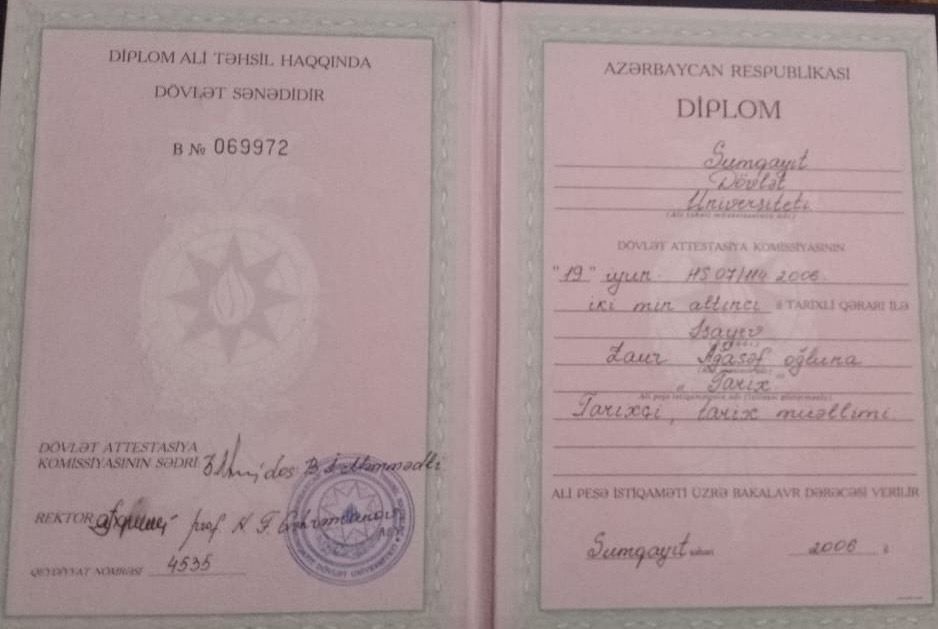 DİPLOM ALİ TƏHSİL HAQQINDA
DÖVLƏT SƏNƏDİDİR
B № 069972
DÖVLƏT ATTESTASİYA
KOMİSSİYASININ SƏDRİ dos. B.
REKTOR prof. N. F.
QEYDİYYAT NÖMRƏSİ 4535
AZƏRBAYCAN RESPUBLİKASI
DİPLOM
Sumqayıt
Dövlət
Universiteti
DÖVLƏT ATTESTASİYA KOMİSSİYASININ
"19" iyun HS 07/114 2006
iki min altıncı il TARİXLİ QƏRARI İLƏ
İsayev
Zaur Ağasəf oğluna
"Tarix"
Tarixçi, tarix müəllimi
ALİ PEŞƏ İSTİQAMƏTİ ÜZRƏ BAKALAVR DƏRƏCƏSİ VERİLİR
Sumqayıt şəhəri 2006